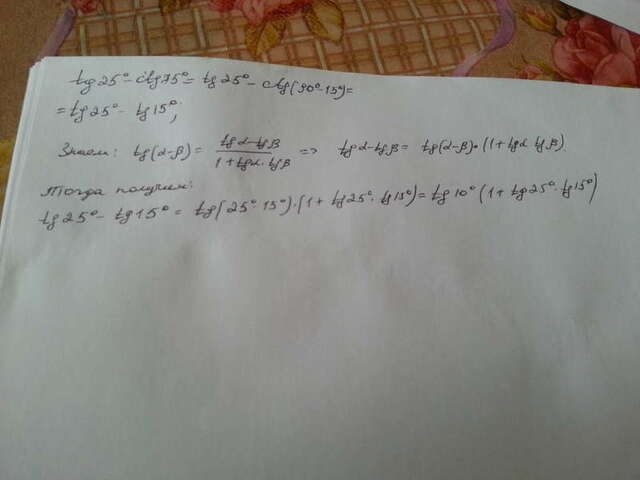 tg 25° - ctg 75° = tg 25° - ctg(90°-15°) =
= tg 25° - tg 15°;
Знаем: tg(α-β) = \frac{tgα-tgβ}{1+tgα·tgβ} => tgα-tgβ = tg(α-β)·(1+tgα tgβ).
Тогда получим:
tg 25° - tg 15° = tg(25°-15°)·(1+tg 25°·tg 15°) = tg 10°(1+tg 25°·tg 15°)